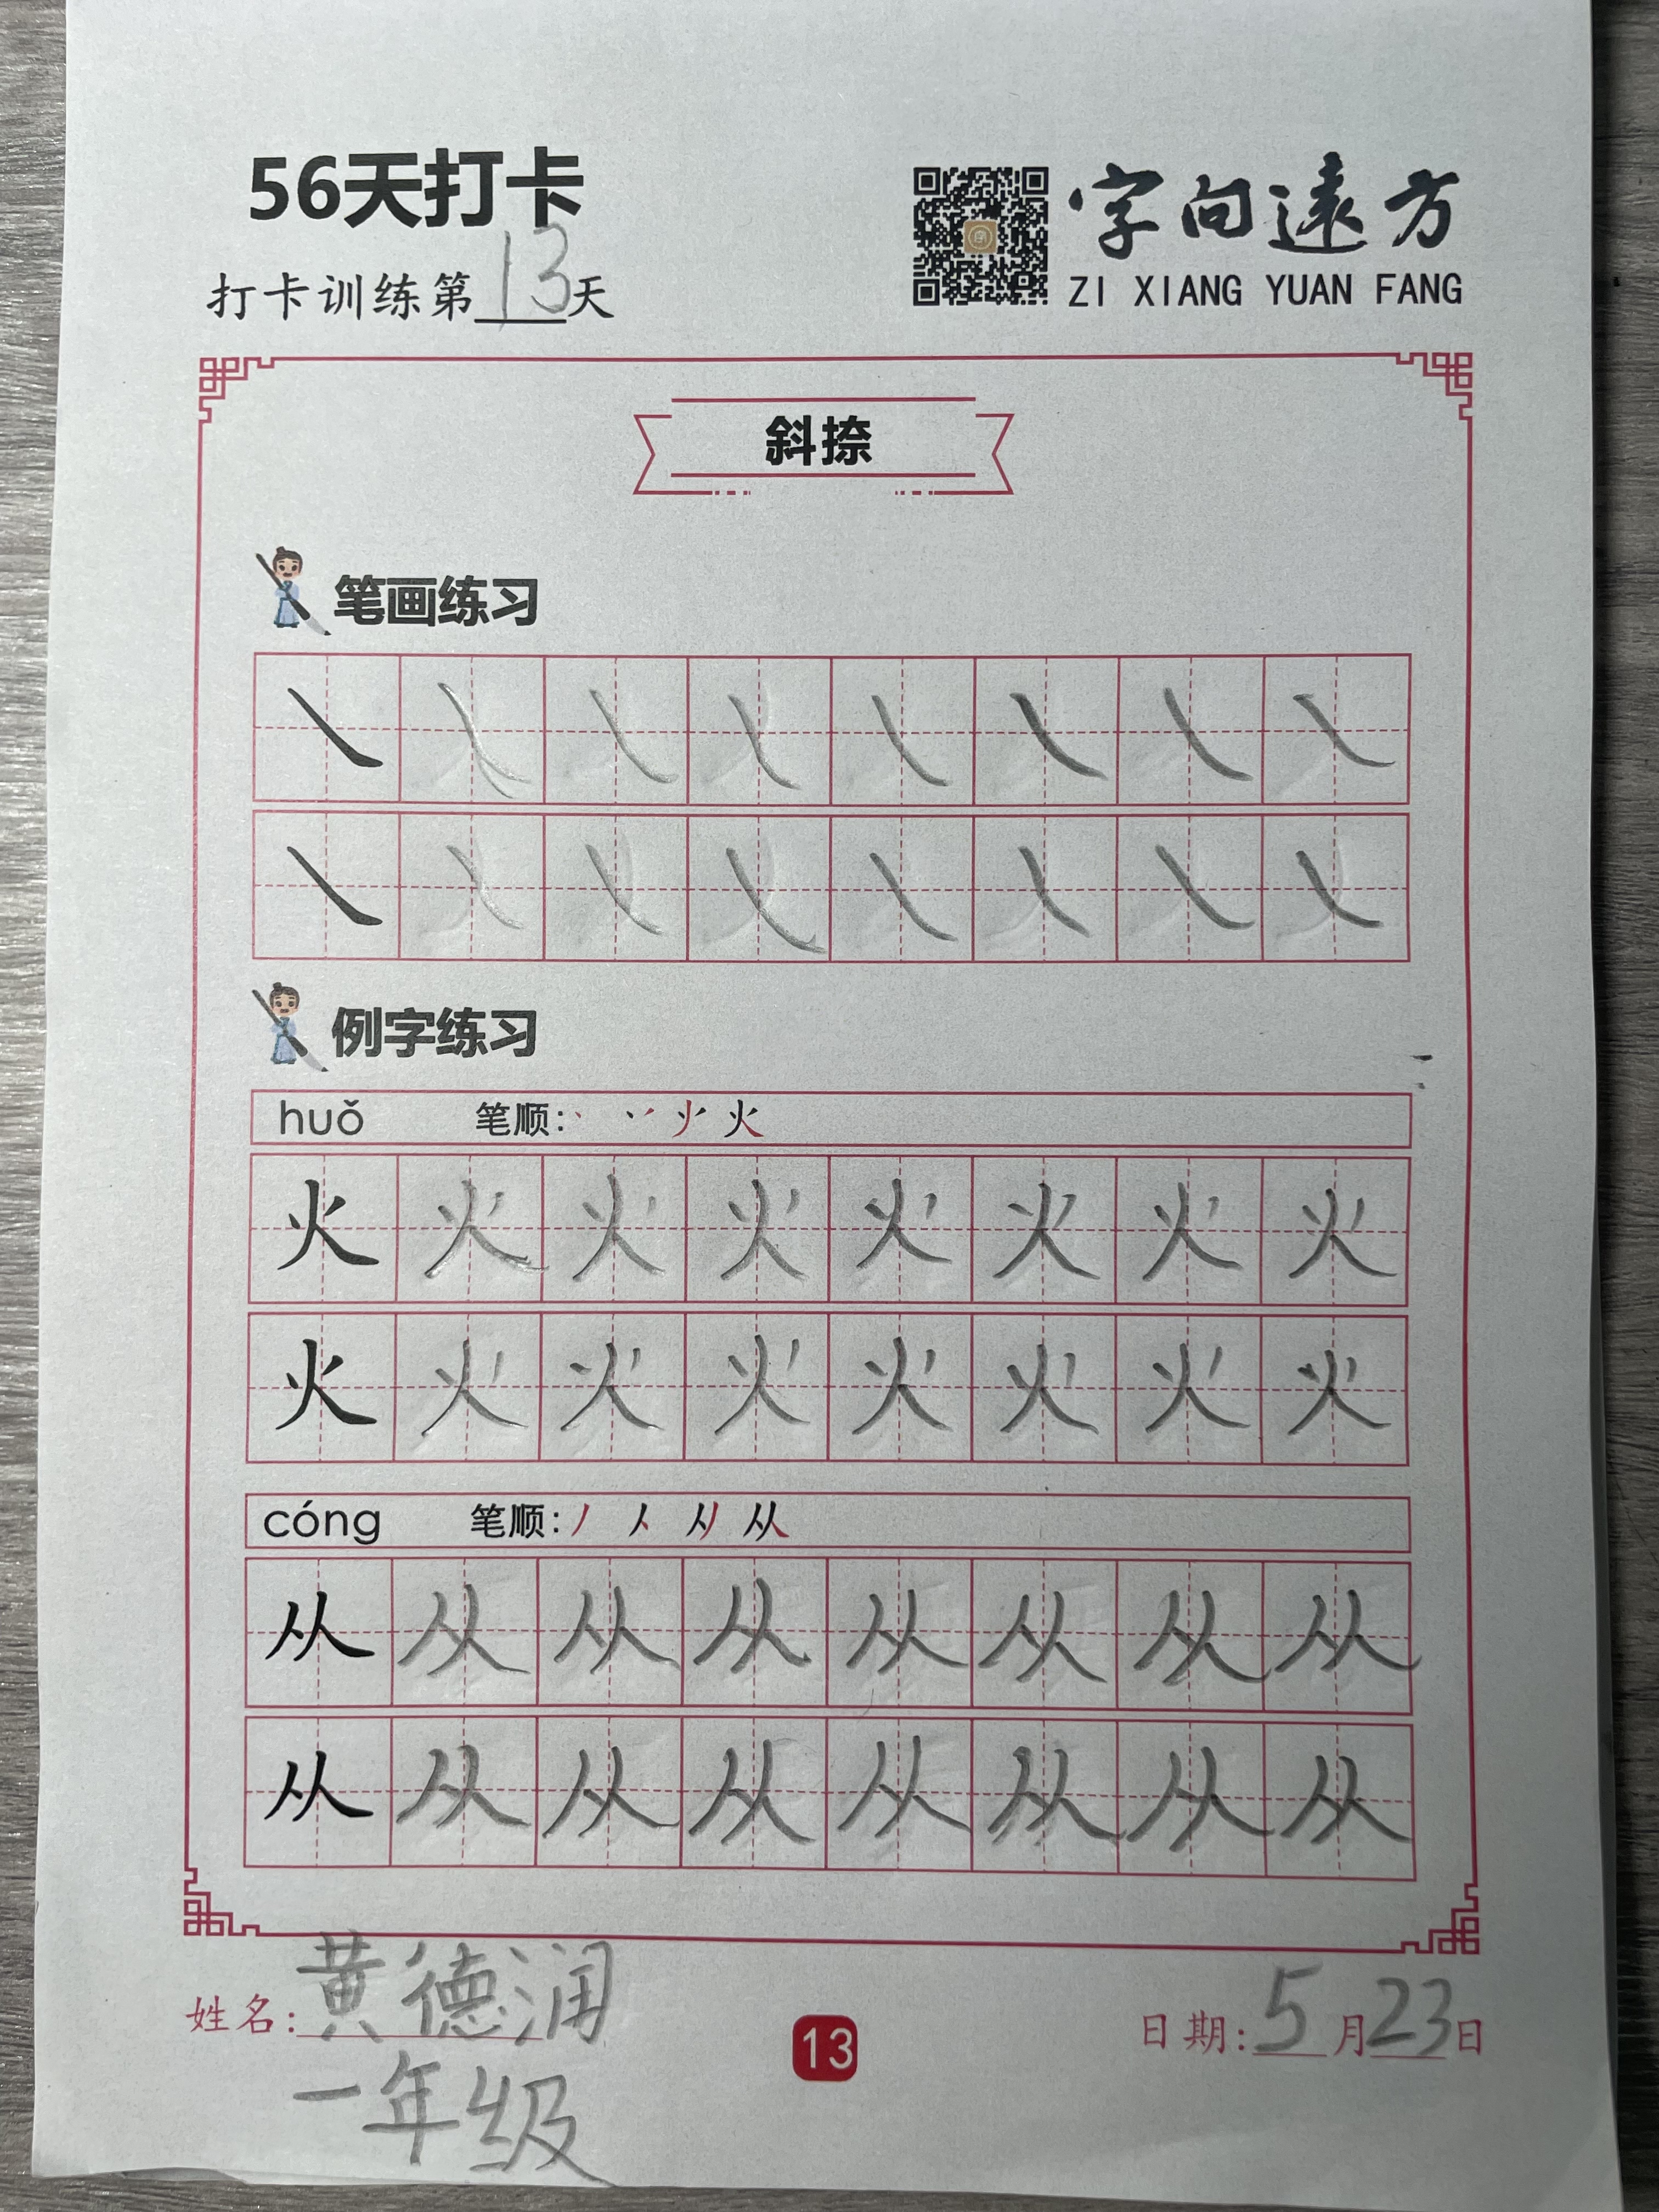 56天打卡
打卡训练第13天
字向遠方
ZI XIANG YUAN FANG
斜捺
笔画练习
例字练习
huǒ 笔顺: 火
火 火 火 火 火 火 火 火
火 火 火 火 火 火 火 火
cóng 笔顺: 丿 人 从
从 从 从 从 从 从 从 从
从 从 从 从 从 从 从 从
姓名: 黄德润
一年级
13
日期: 5月23日